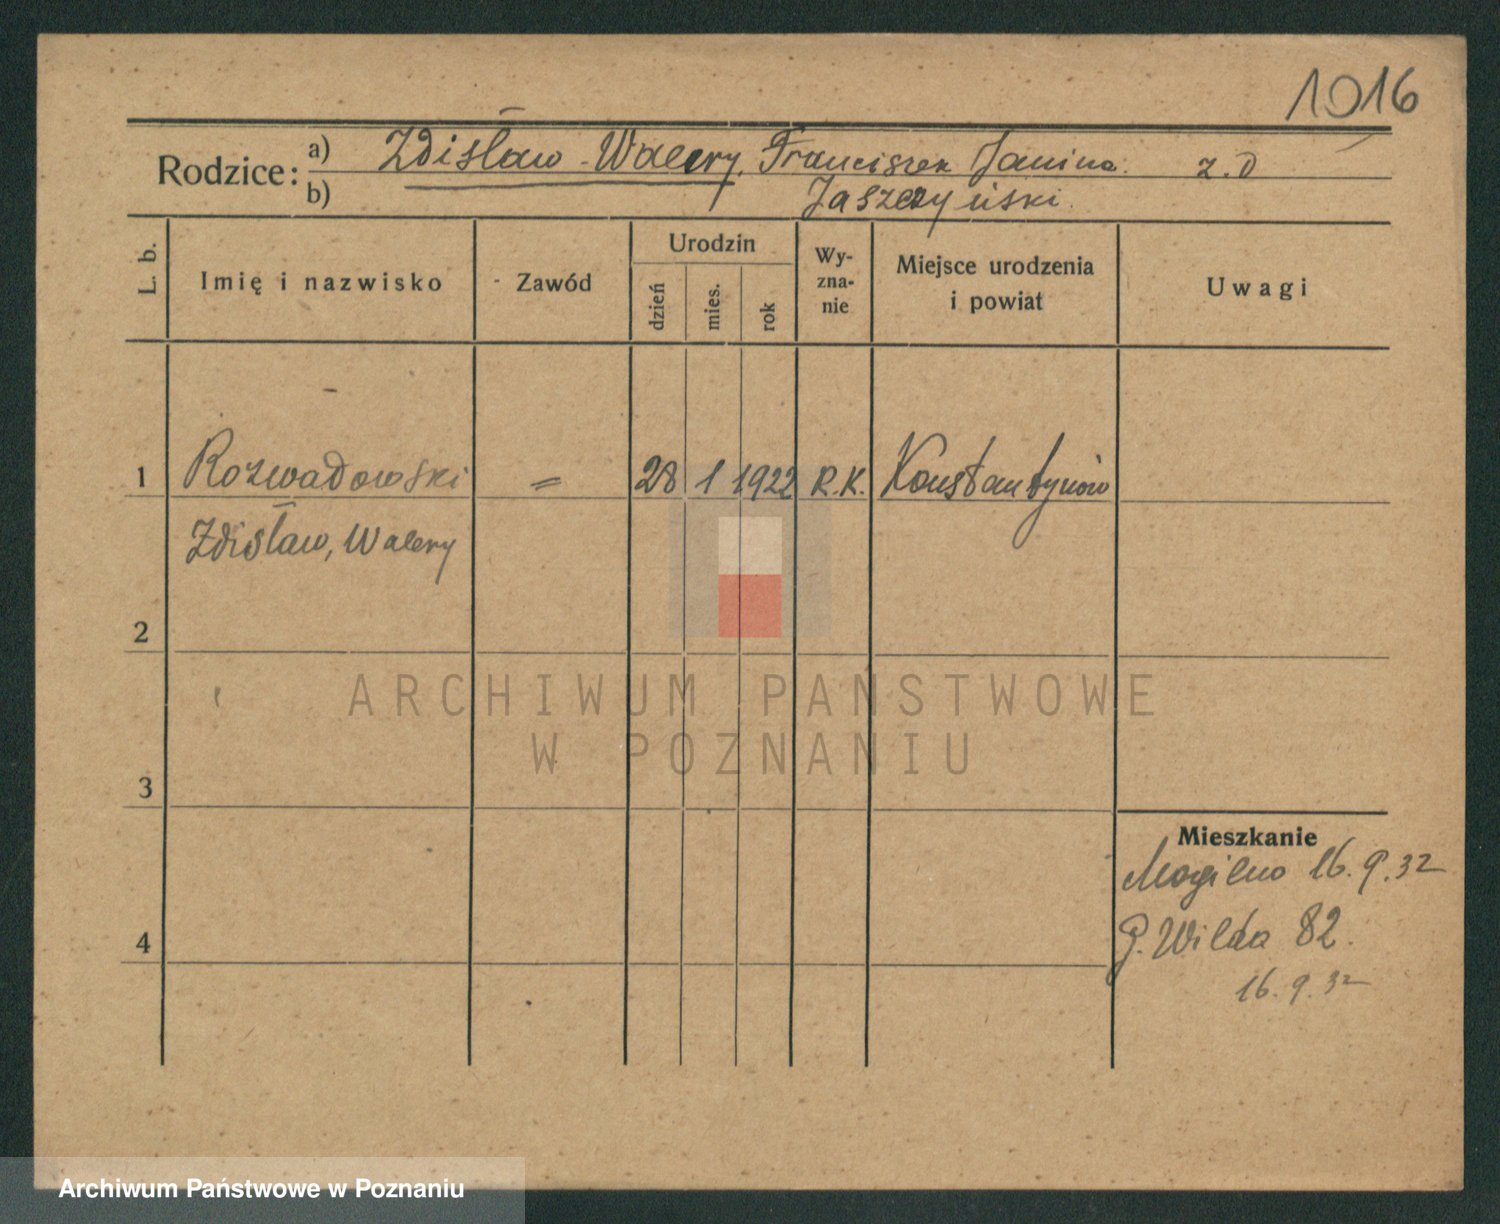 1016
Rodzice: a) Zdisław Walery, Franciszek Janina z. D
b) Jaszczyński
L. b.
Imię i nazwisko
Zawód
Urodzin
dzień
mies.
rok
Wy-
zna-
nie
Miejsce urodzenia
i powiat
Uwagi
1 Rozwadowski = 28 1 1922 R.K. Konstantynów
Zdisław, Walery
2
ARCHIWUM PAŃSTWOWE
W POZNANIU
3
Mieszkanie
Mogilno 16.9.32
G. Wilda 82.
4
16.9.32
Archiwum Państwowe w Poznaniu